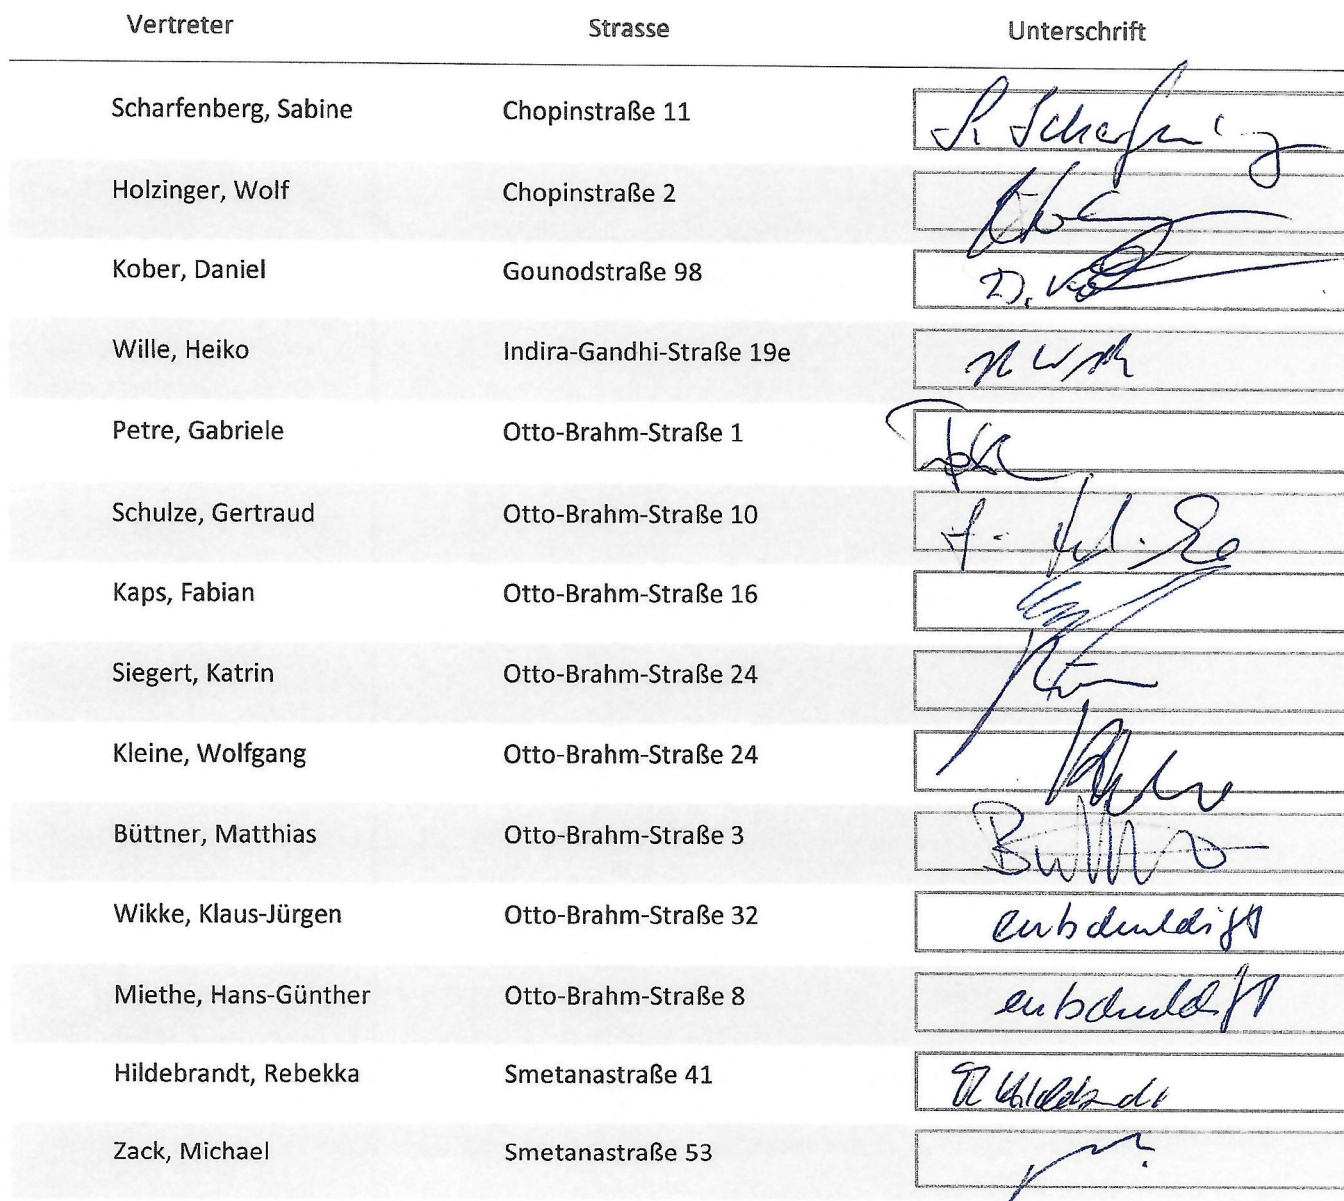 Vertreter Strasse Unterschrift
Scharfenberg, Sabine Chopinstraße 11 S. Scharfenberg
Holzinger, Wolf Chopinstraße 2
Kober, Daniel Gounodstraße 98
Wille, Heiko Indira-Gandhi-Straße 19e
Petre, Gabriele Otto-Brahm-Straße 1
Schulze, Gertraud Otto-Brahm-Straße 10
Kaps, Fabian Otto-Brahm-Straße 16
Siegert, Katrin Otto-Brahm-Straße 24
Kleine, Wolfgang Otto-Brahm-Straße 24
Büttner, Matthias Otto-Brahm-Straße 3
Wikke, Klaus-Jürgen Otto-Brahm-Straße 32 entschuldigt
Miethe, Hans-Günther Otto-Brahm-Straße 8 entschuldigt
Hildebrandt, Rebekka Smetanastraße 41
Zack, Michael Smetanastraße 53